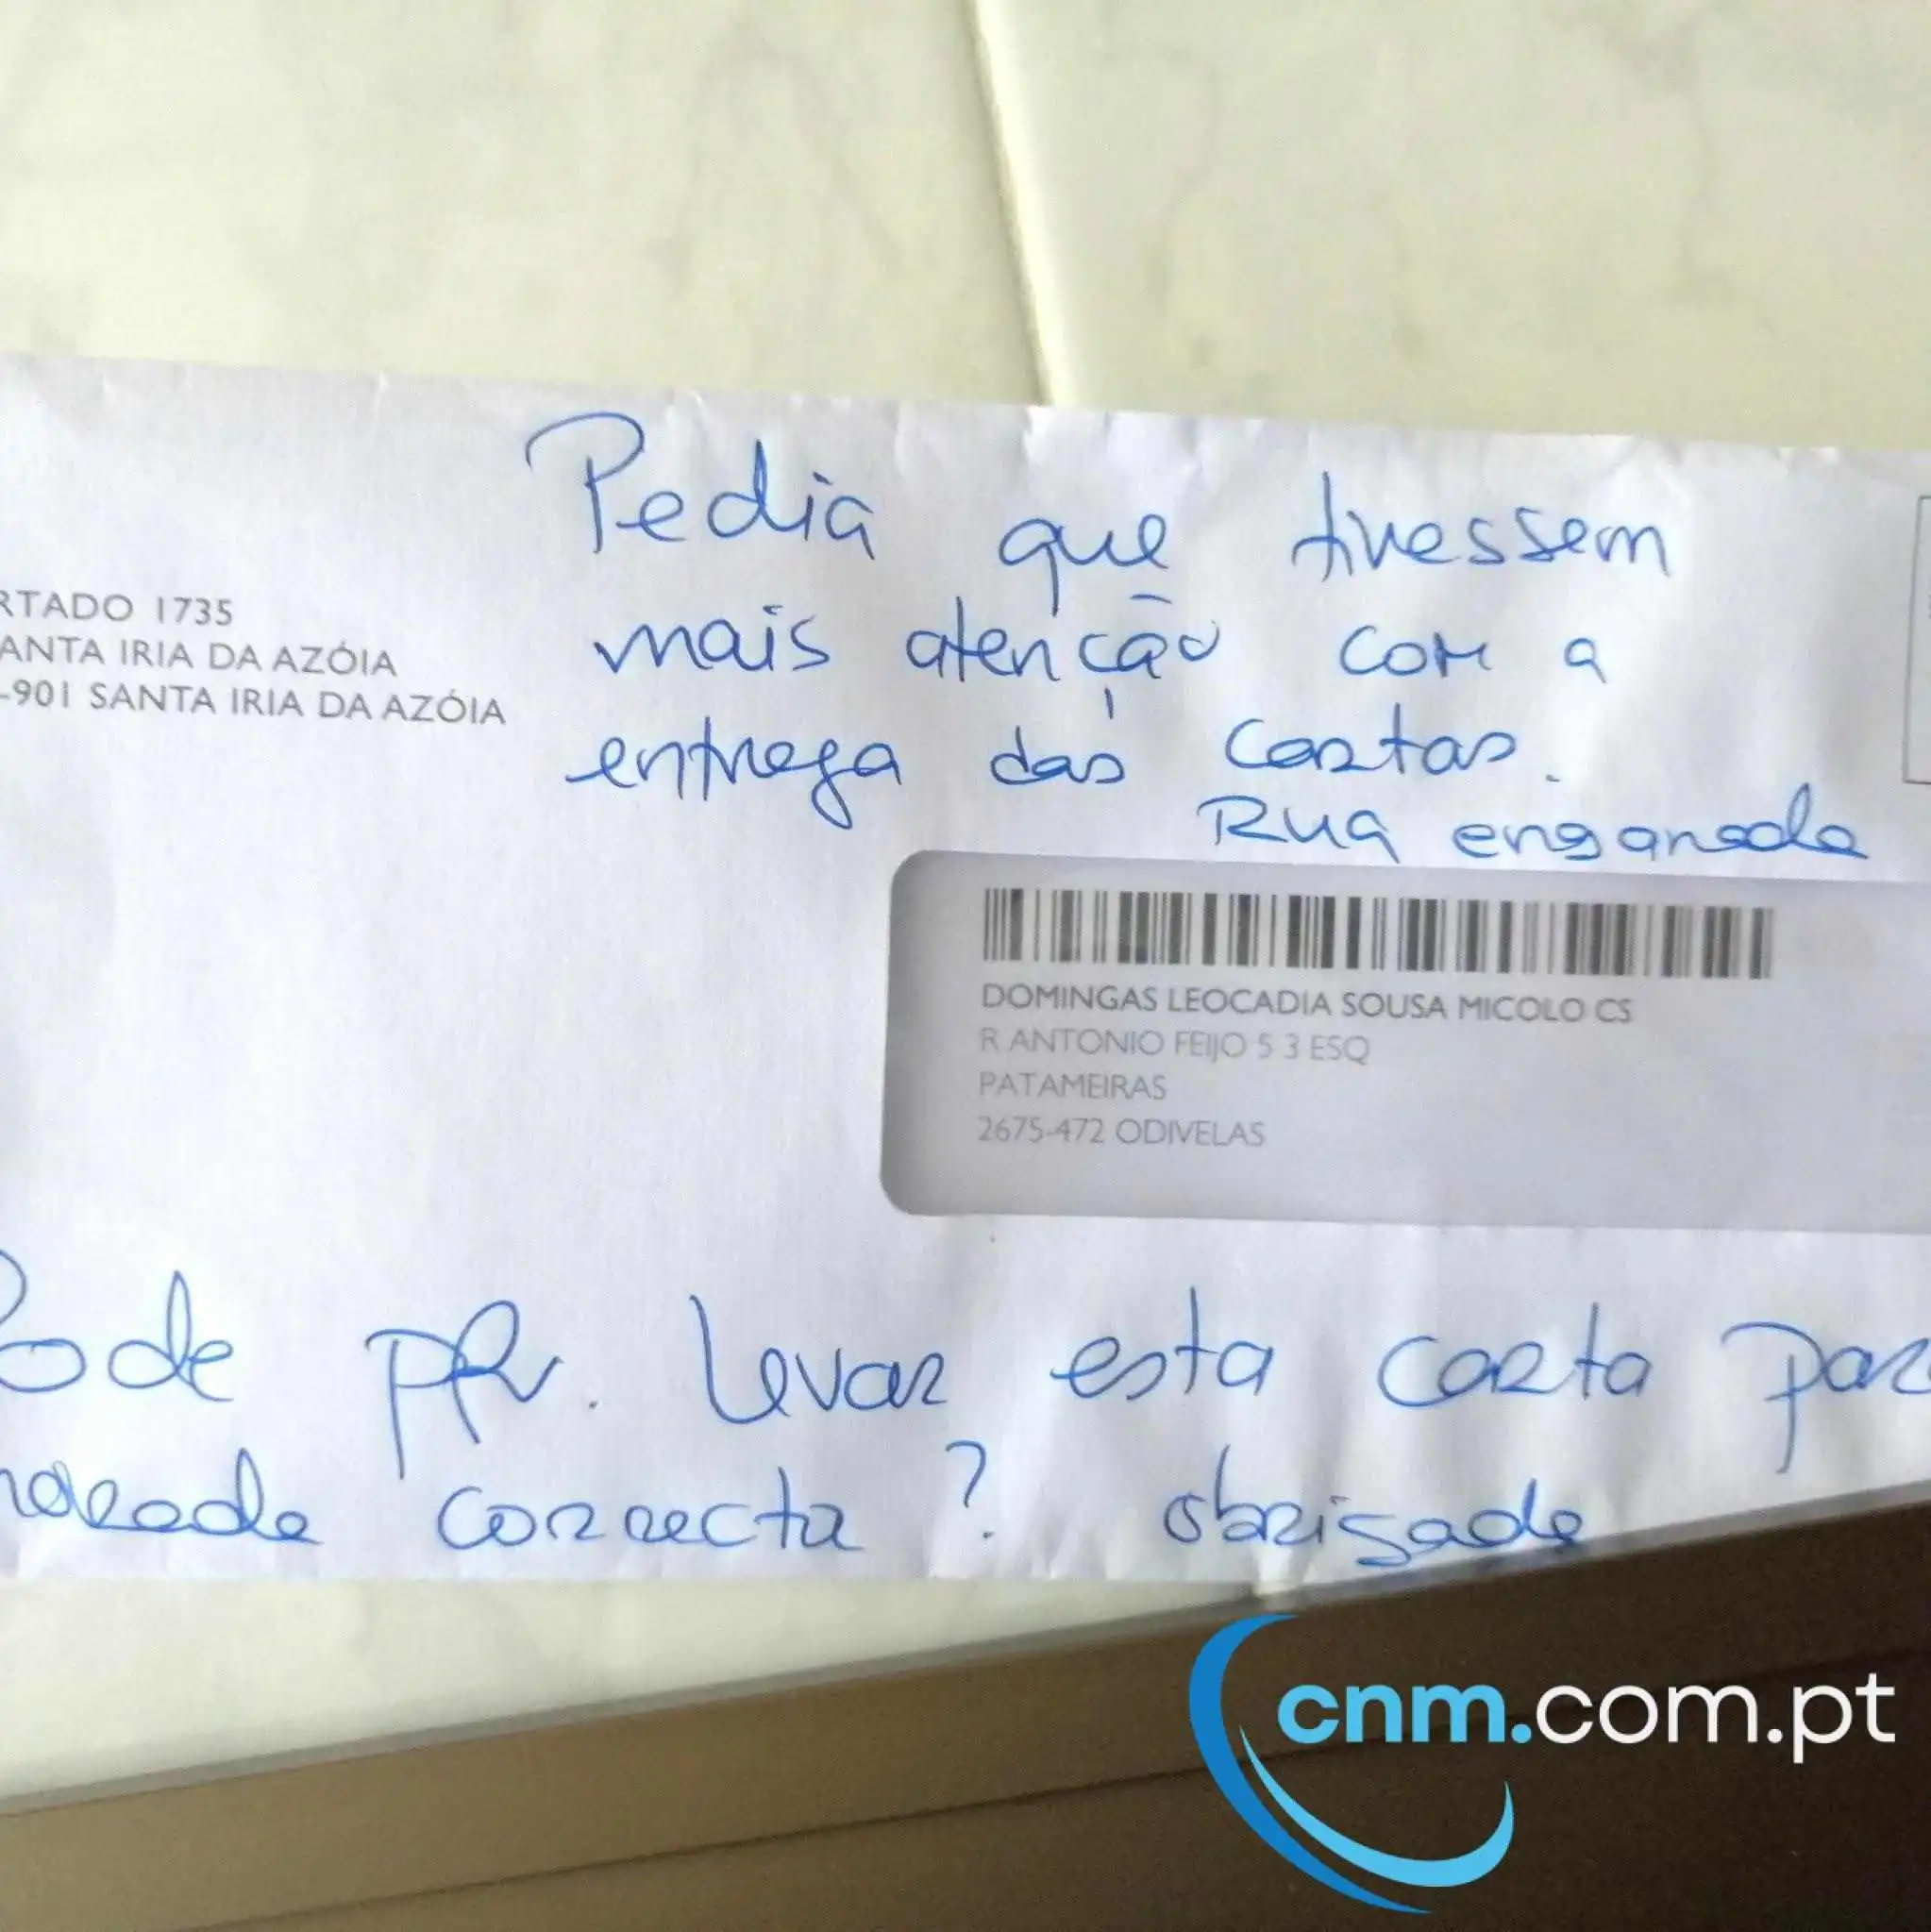 Pedia que tivessem
mais atenção com a
entrega das cartas.
Rua enganada
RTADO 1735
ANTA IRIA DA AZÓIA
-901 SANTA IRIA DA AZÓIA
DOMINGAS LEOCADIA SOUSA MICOLO CS
R ANTONIO FEIJO 5 3 ESQ
PATAMEIRAS
2675-472 ODIVELAS
Pode pfv. levar esta carta par
morada correcta? obrigada
cnm.com.pt